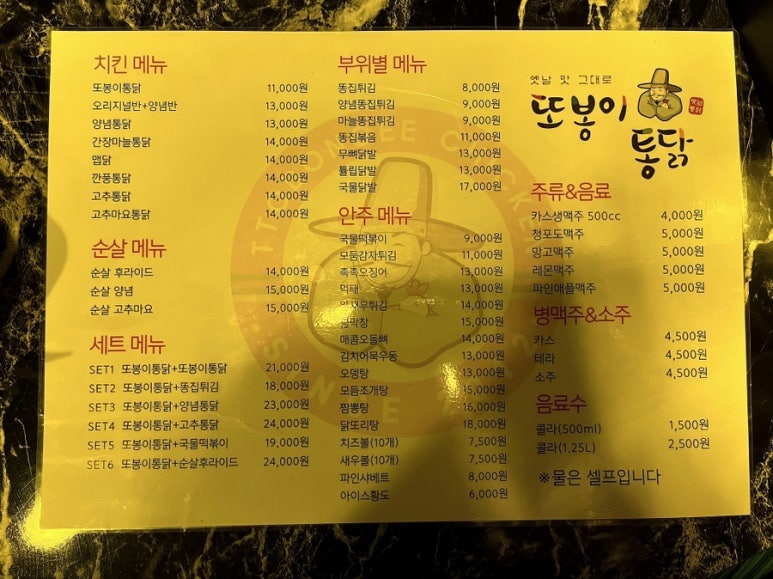 치킨 메뉴
또봉이통닭 11,000원
오리지널반+양념반 13,000원
양념통닭 13,000원
간장마늘통닭 14,000원
맵닭 14,000원
깐풍통닭 14,000원
고추통닭 14,000원
고추마요통닭 14,000원
순살 메뉴
순살 후라이드 14,000원
순살 양념 15,000원
순살 고추마요 15,000원
세트 메뉴
SET1 또봉이통닭+또봉이통닭 21,000원
SET2 또봉이통닭+똥집튀김 18,000원
SET3 또봉이통닭+양념통닭 23,000원
SET4 또봉이통닭+고추통닭 24,000원
SET5 또봉이통닭+국물떡볶이 19,000원
SET6 또봉이통닭+순살후라이드 24,000원
부위별 메뉴
똥집튀김 8,000원
양념똥집튀김 9,000원
마늘똥집튀김 9,000원
똥집볶음 11,000원
무뼈닭발 13,000원
튤립닭발 13,000원
국물닭발 17,000원
안주 메뉴
국물떡볶이 9,000원
모둠감자튀김 11,000원
촉촉오징어 13,000원
먹태 13,000원
13,000원
15,000원
매콤오돌뼈 14,000원
김치어묵우동 13,000원
오뎅탕 13,000원
모듬조개탕 15,000원
짬뽕탕 16,000원
닭도리탕 18,000원
치즈볼(10개) 7,500원
새우볼(10개) 7,500원
파인샤베트 8,000원
아이스황도 6,000원
옛날 맛 그대로
또봉이
통닭
주류&음료
카스생맥주 500cc 4,000원
청포도맥주 5,000원
망고맥주 5,000원
레몬맥주 5,000원
파인애플맥주 5,000원
병맥주&소주
카스 4,500원
테라 4,500원
소주 4,500원
음료수
콜라(500ml) 1,500원
콜라(1.25L) 2,500원
※물은 셀프입니다